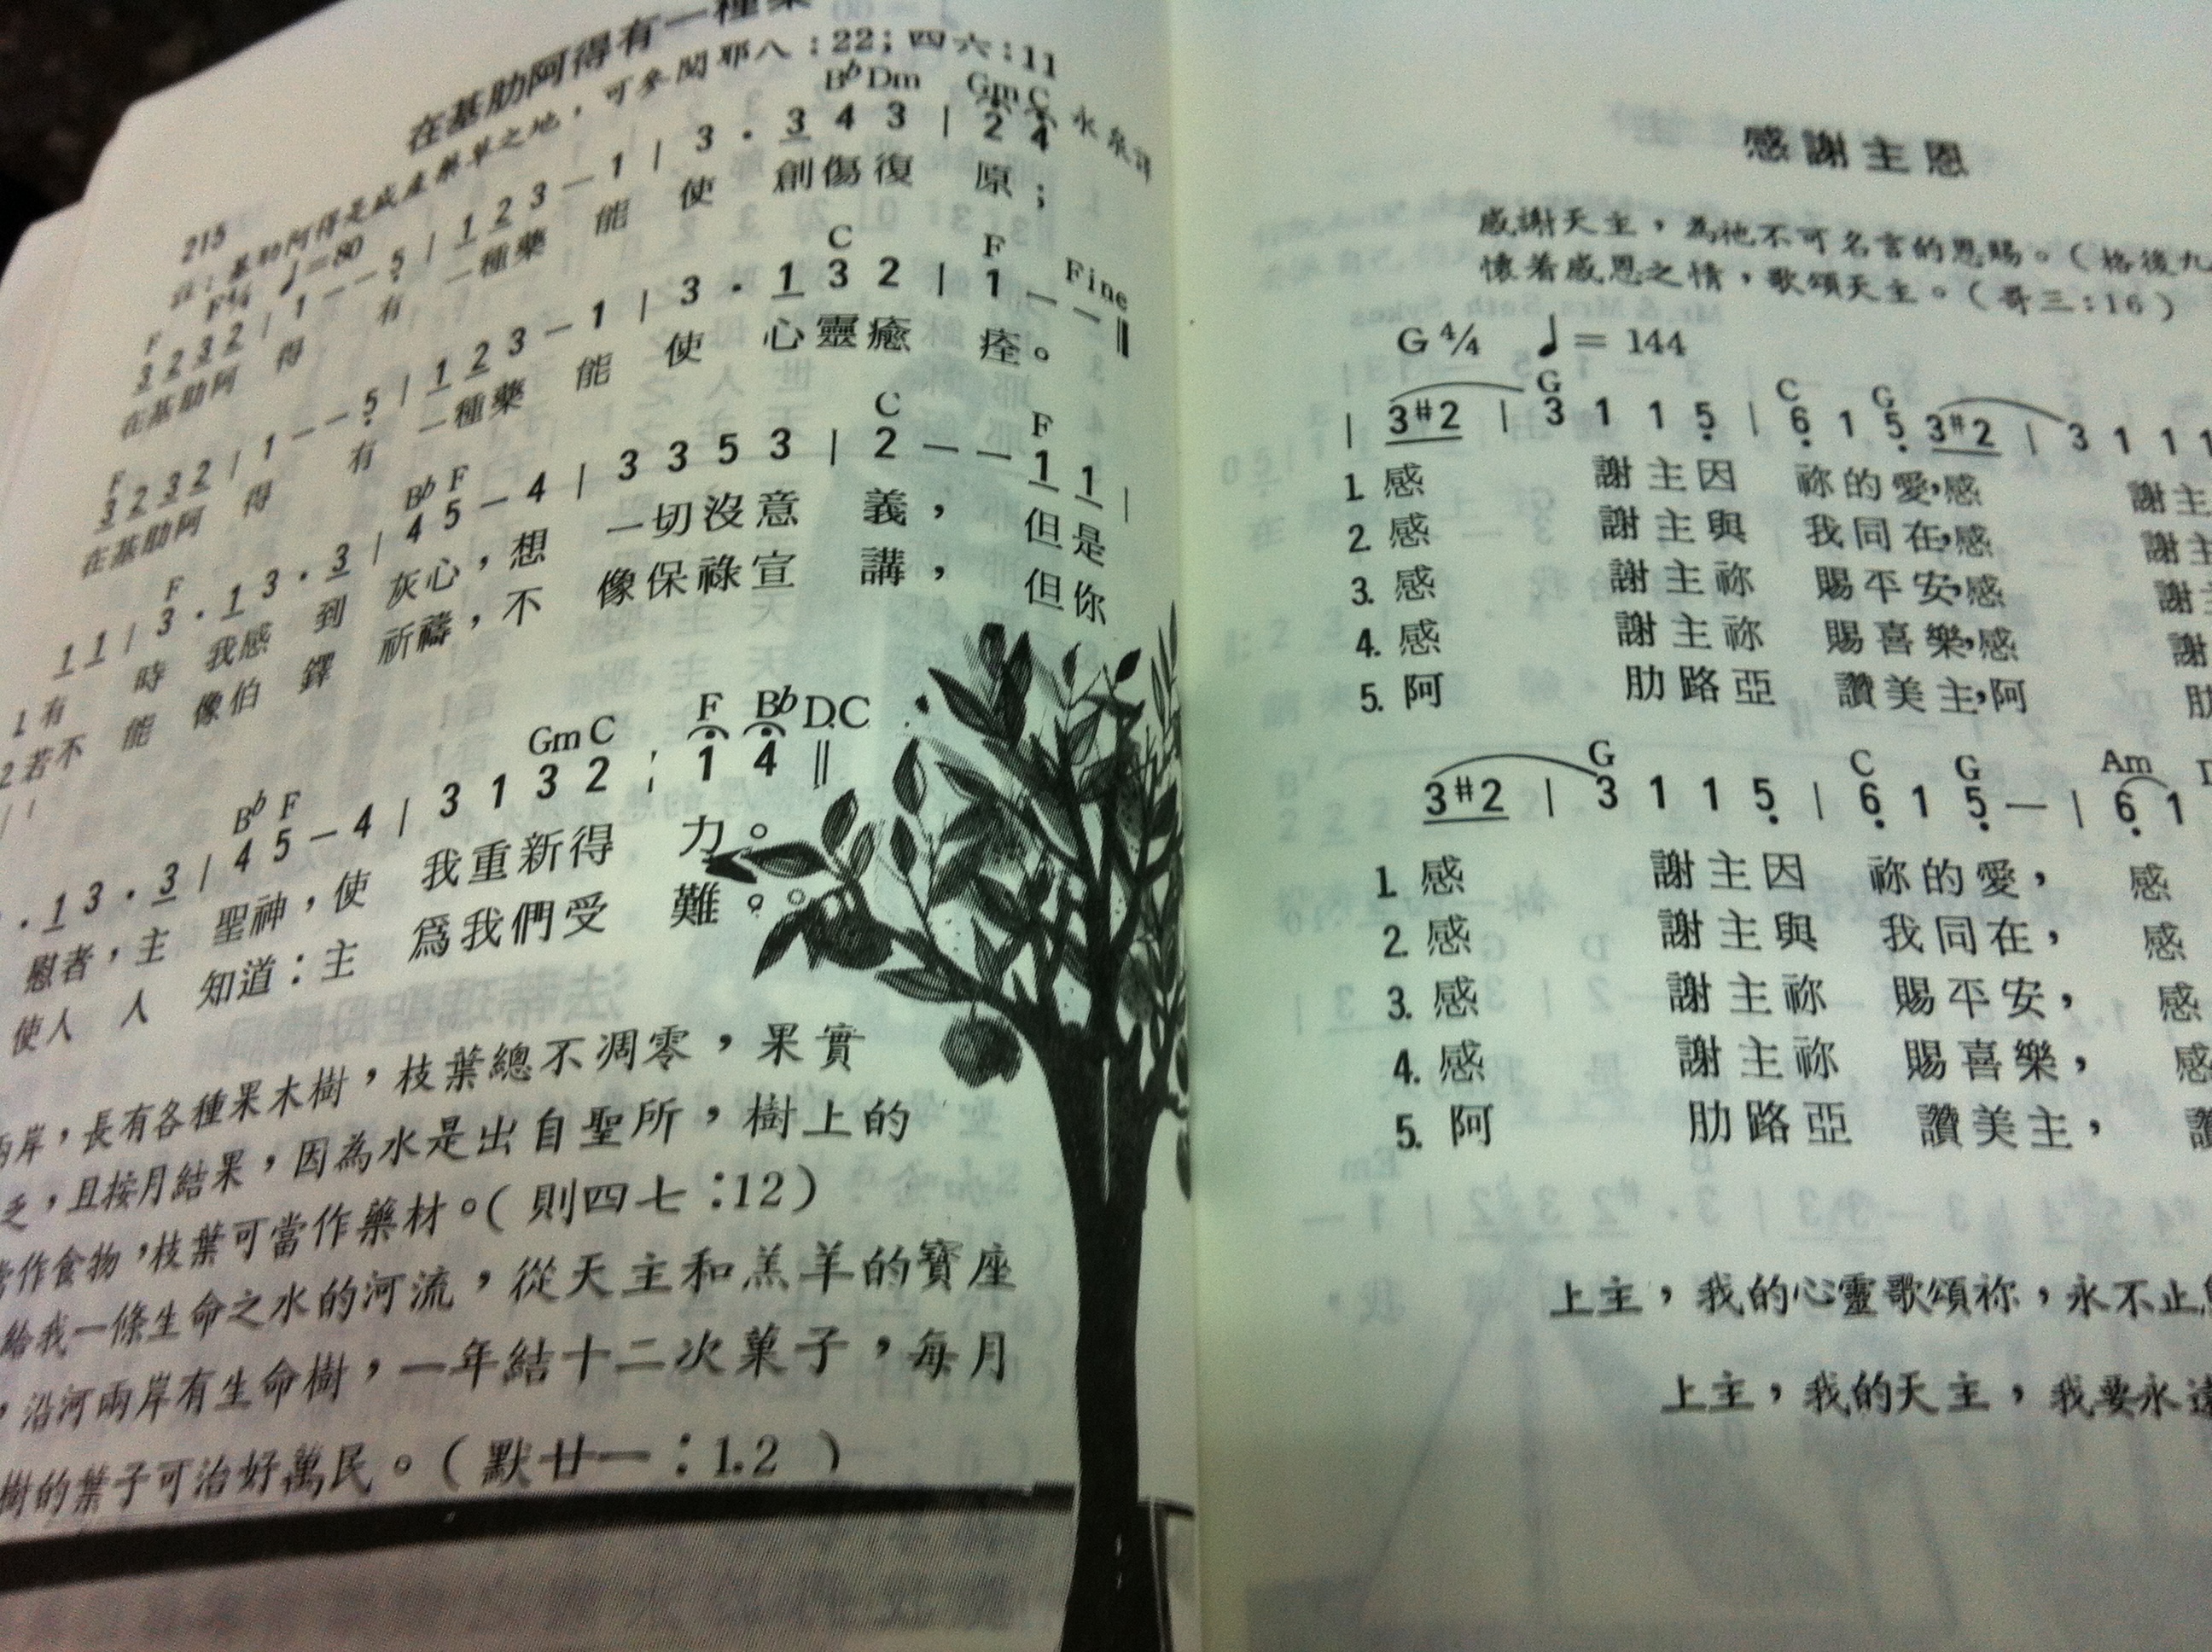 在基肋阿得有一種藥
215
註：基肋阿得是盛產藥草之地，可參閱耶八：22；四六：11
F 4/4 ♩=80
F Bb Dm Gm C
3 2 3 2 | 1 – – 5 | 1 2 3 – 1 | 3 · 3 4 3 | 2 4
在基肋阿 得 有 一種藥 能 使 創傷復 原；
F C F Fine
3 2 3 2 | 1 – – 5 | 1 2 3 – 1 | 3 · 1 3 2 | 1 – – ‖
在基肋阿 得 有 一種藥 能 使 心靈癒 痊。
F Bb F C F
1 1 | 3 · 1 3 · 3 | 4 5 – 4 | 3 3 5 3 | 2 – – 1 1 |
1 有 時 我感 到 灰心，想 一切沒意 義， 但是
2 若不 能 像伯 鐸 祈禱，不 像保祿宣 講， 但你
Bb F Gm C F Bb D.C
· 1 3 · 3 | 4 5 – 4 | 3 1 3 2 | 1 4 ‖
慰者，主 聖神，使 我重新得 力。
使人 人 知道：主 爲我們受 難。
兩岸，長有各種果木樹，枝葉總不凋零，果實
乏，且按月結果，因為水是出自聖所，樹上的
當作食物，枝葉可當作藥材。（則四七：12）
給我一條生命之水的河流，從天主和羔羊的寶座
，沿河兩岸有生命樹，一年結十二次菓子，每月
樹的葉子可治好萬民。（默廿一：1.2）
感謝主恩
感謝天主，為祂不可名言的恩賜。（格後九
懷着感恩之情，歌頌天主。（哥三：16）
G 4/4 ♩= 144
G C G
| 3 #2 | 3 1 1 5 | 6 1 5 3 #2 | 3 1 1 1
1. 感 謝主因 祢的愛，感 謝主
2. 感 謝主與 我同在，感 謝主
3. 感 謝主祢 賜平安，感 謝主
4. 感 謝主祢 賜喜樂，感 謝
5. 阿 肋路亞 讚美主，阿 肋
G C G Am
3 #2 | 3 1 1 5 | 6 1 5 – | 6 1
1. 感 謝主因 祢的愛， 感
2. 感 謝主與 我同在， 感
3. 感 謝主祢 賜平安， 感
4. 感 謝主祢 賜喜樂， 感
5. 阿 肋路亞 讚美主， 讚
上主，我的心靈歌頌祢，永不止息
上主，我的天主，我要永遠